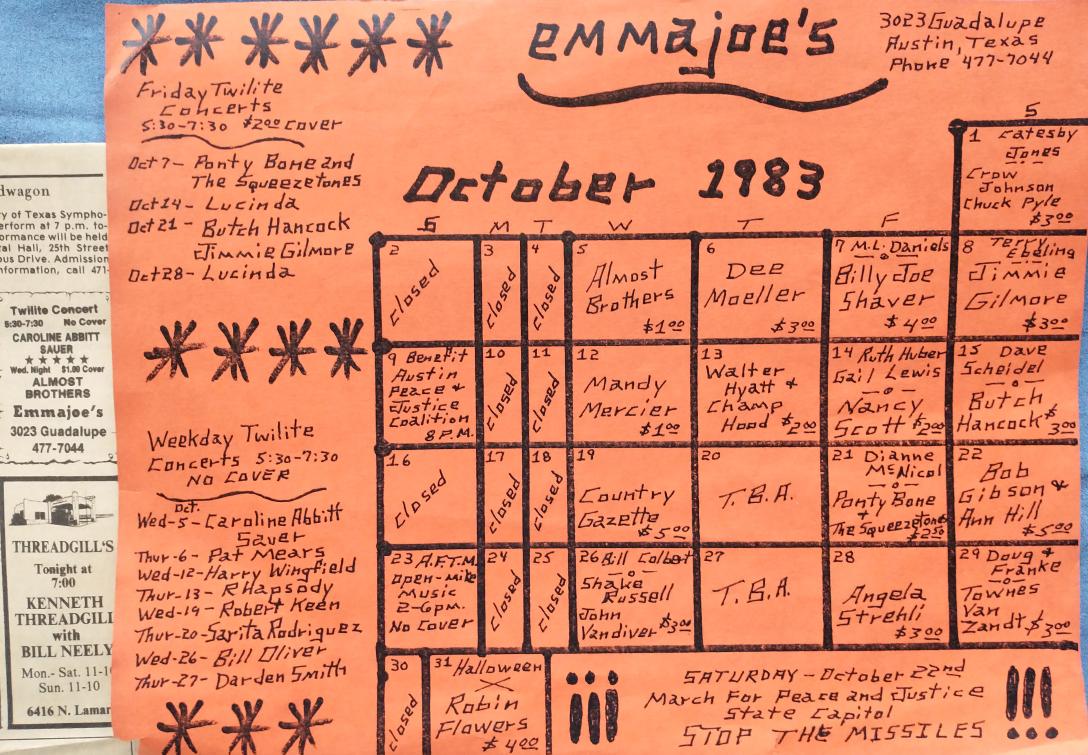 emmajoe's
3023 Guadalupe
Austin, Texas
Phone 477-7044
Friday Twilite
Concerts
5:30-7:30 $2.00 cover
Oct 7- Ponty Bone and
The Squeezetones
Oct 14- Lucinda
Oct 21- Butch Hancock
Jimmie Gilmore
Oct 28- Lucinda
Weekday Twilite
Concerts 5:30-7:30
NO COVER
Oct.
Wed-5- Caroline Abbitt
Sauer
Thur-6- Pat Mears
Wed-12-Harry Wingfield
Thur-13- RHapsody
Wed-19- Robert Keen
Thur-20-Sarita Rodriguez
Wed-26- Bill Oliver
Thur-27- Darden Smith
October 1983
S M T W T F S
1 Catesby
Jones
Crow
Johnson
Chuck Pyle
$3.00
2
closed
3
closed
4
closed
5
Almost
Brothers
$1.00
6
Dee
Moeller
$3.00
7 M.L. Daniels
Billy Joe
Shaver
$4.00
8 Terry
Ebeling
Jimmie
Gilmore
$3.00
9 Benefit
Austin
Peace &
Justice
Coalition
8 P.M.
10
closed
11
closed
12
Mandy
Mercier
$1.00
13
Walter
Hyatt &
Champ
Hood $2.00
14 Ruth Huber
Gail Lewis
Nancy
Scott $2.00
15 Dave
Scheidel
Butch
Hancock $3.00
16
closed
17
closed
18
closed
19
Country
Gazette
$5.00
20
T.B.A.
21 Dianne
McNicol
Ponty Bone
+
The Squeezetones
$2.50
22
Bob
Gibson &
Ann Hill
$5.00
23 A.F.T.M.
Open-mike
Music
2-6pm.
No Cover
24
closed
25
closed
26 Bill Colbert
Shake
Russell
John
Vandiver $3.00
27
T.B.A.
28
Angela
Strehli
$3.00
29 Doug &
Franke
Townes
Van
Zandt $3.00
30
closed
31 Halloween
Robin
Flowers
$4.00
!!!
SATURDAY - October 22nd
March For Peace and Justice
State Capitol
STOP THE MISSILES
!!!
dwagon
ry of Texas Sympho-
erform at 7 p.m. to-
ormance will be held
tal Hall, 25th Street
ous Drive. Admission
nformation, call 471-
Twilite Concert
5:30-7:30 No Cover
CAROLINE ABBITT
SAUER
Wed. Night $1.00 Cover
ALMOST
BROTHERS
Emmajoe's
3023 Guadalupe
477-7044
THREADGILL'S
Tonight at
7:00
KENNETH
THREADGILL
with
BILL NEELY
Mon.- Sat. 11-10
Sun. 11-10
6416 N. Lamar